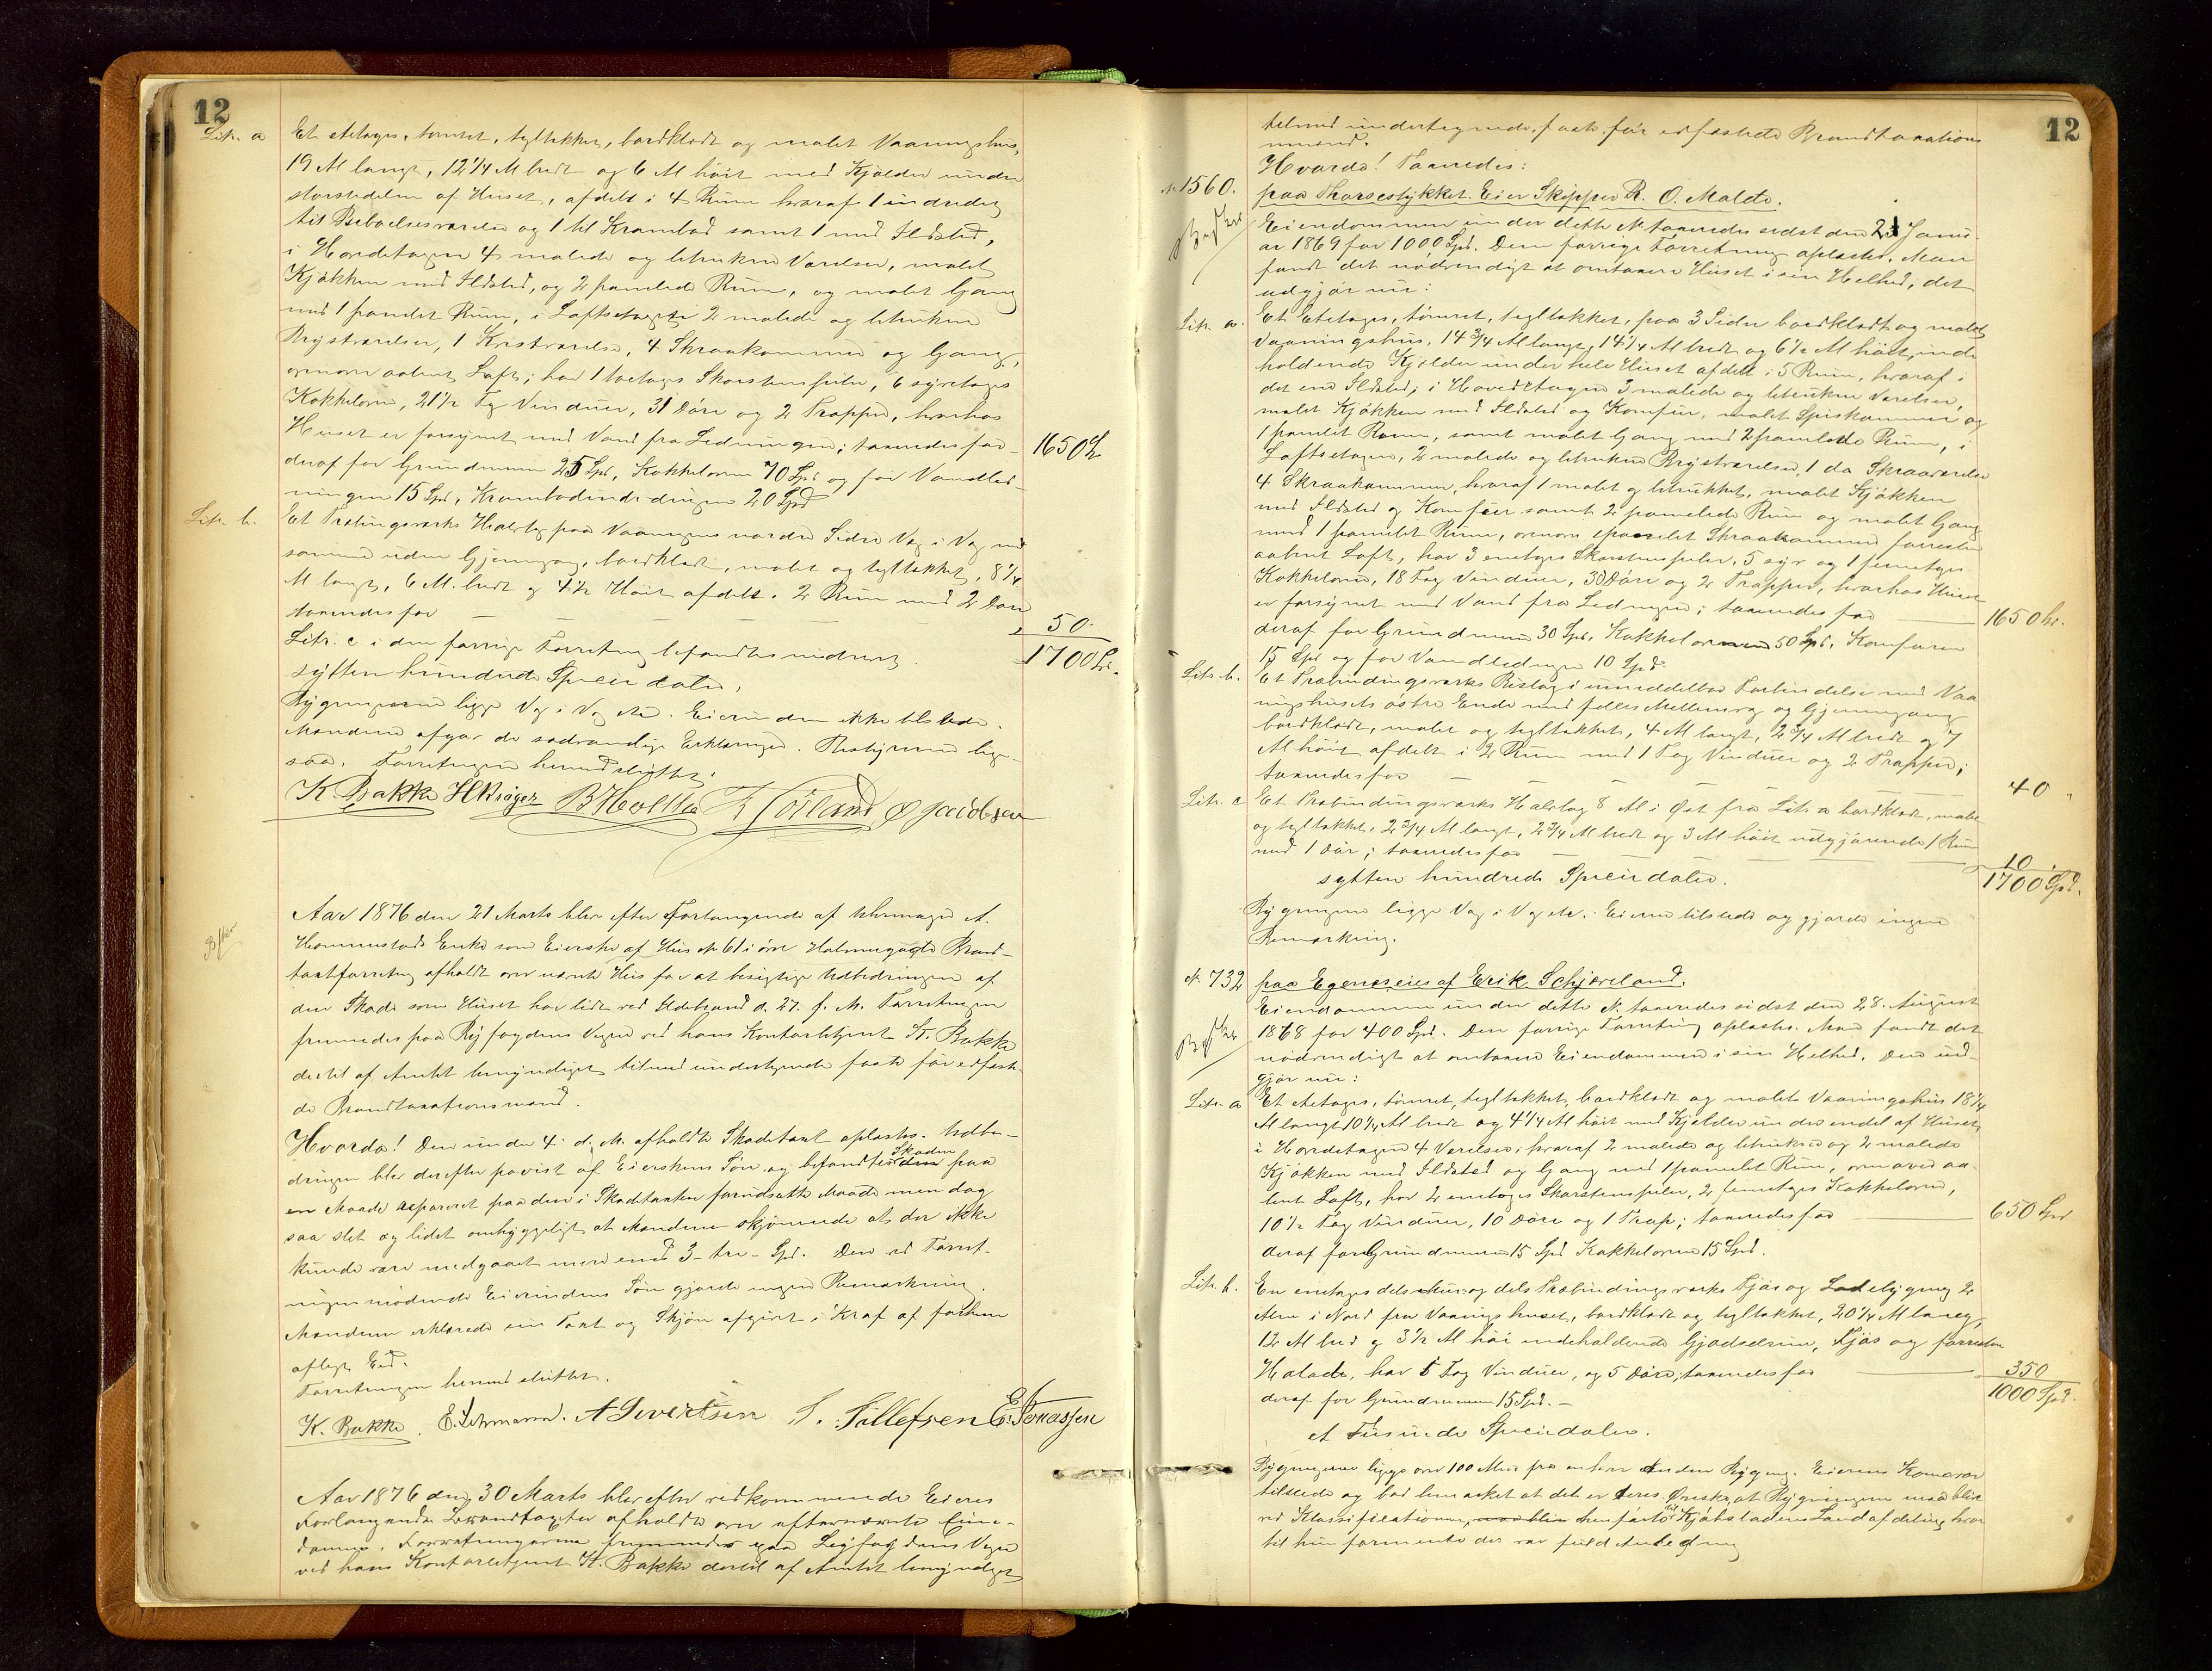 12
Litr. a Et etetages, tømret, tegltækket, bordklædt og malet Vaaningshus,
19 Al langt, 12 1/4 Al bredt og 6 Al høit med Kjælder under
størstedelen af Huset, afdelt i 4 Rum hvoraf 1 indredet
til Beboelsesværelse og 1 til Krambod samt 1 med Ildsted,
i Hovedetagen 4 malede og betrukne Værelser, malet
Kjøkken med Ildsted, og 2 panelede Rum, og malet Gang
med 1 panelet Rum, i Loftsetagen 2 malede og betrukne
Brystværelser, 1 Kvistværelse, 4 Skraakammere og Gang,
ovenover aabent Loft; har 1 toetages Skorstenspibe, 6 syvetages
Kakkelovne, 21 1/2 Fag Vinduer, 31 Døre og 2 Trapper, hvorhos
Huset er forsynet med Vand fra Ledningen; taxeredes for — 1650 Sp
deraf for Grundmuren 25 Spd, Kakkelovne 70 Spd og for Vandled-
ningen 15 Spd, Krambodindredningen 20 Spd
Litr. b. Et Træbingsværks Halvtag paa Vaaningens nordre Side Væg i Væg med
samme uden Gjennemgang, bordklædt, malet og tegltækket, 8 1/4
Al langt, 6 Al. bredt og 4 1/2 Høit afdelt i 2 Rum med 2 Døre
taxeredes for — — — — 50.
Litr. c i den forrige Forretning befandtes nedrevet. 1700 Spd.
sytten hundrede Speciedaler.
Bygningerne ligge Væg i Væg etc. Eierinden ikke tilstede.
Mændene afgav de sædvanlige Erklæringer. Bestyreren lige-
saa. Forretningen hermed sluttet.
K. Bakke H Krøger B Hvoltta Jacobsen
Aar 1876 den 21 Marts blev efter Forlangende af Uhrmager A.
Hommestads Enke som Eierske af Hus No 61 i øvre Holmegade Brand-
taxtforretning afholdt over nævnte Hus for at besigtige Udbedringen af
den Skade som Huset har lidt ved Ildebrand d. 27. f. M. Forretningen
fremmedes paa Byfogdens Vegne ved hans Kontorbetjent K. Bakke
dertil af Amtet bemyndiget tilmed undertegnede faste før edfæst-
de Brandtaxationsmænd.
Hvorda! Den under 4. d. M. afholdte Skadetaxt oplæstes. Udbe-
dringen blev derefter paavist af Eierskens Søn og befandtes Skaden paa
en Maade repareret paa den i Skadetaxten forudsatte Maade men dog
saa slet og lidet omhyggeligt at Mændene skjønnede at der ikke
kunde være medgaaet mere end 3 - tre - Spd. Den ved Forret-
ningen mødende Eierindens Søn gjorde ingen Bemærkning.
Mændene erklærede sin Taxt og Skjøn afgivet i Kraf af forhen
aflagt Ed.
Forretningen hermed sluttet.
K. Bakke. E. Lehmann. A Sivertsen S. Tillefsen E. Tonassen
Aar 1876 den 30 Marts blev efter vedkommende Eieres
Forlangende Brandtaxter afholdte over efternævnte Eien-
domme. Forretningerne fremmedes paa Byfogdens Vegne
ved hans Kontorbetjent K. Bakke dertil af Amtet bemyndiget
12
tilmed undertegnede faste før edfæstede Brandtaxations
mænd.
Hvorda! Taxeredes:
No 1560. paa Thorsestykket. Eier Skipper R. O. Malde.
Eiendommen under dette No taxeredes sidst den 21 Janu-
ar 1869 for 1000 Spd. Den forrige Forretning oplæstes. Man
fandt det nødvendigt at omtaxere Huset i sin Helhed, det
udgjør nu:
Litr. a. Et Etetages, tømret, tegltækket, paa 3 Sider bordklædt og malet
Vaaningshus, 14 3/4 Al langt, 14 1/4 Al bredt og 6 1/2 Al høit, inde
holdende Kjælder under hele Huset afdelt i 5 Rum, hvoraf i
det ene Ildsted; i Hovedetagen 3 malede og betrukne Værelser,
malet Kjøkken med Ildsted og Komfur, malet Spiskammer og
1 panelet Rum, samt malet Gang med 2 panelede Rum, i
Loftsetagen, 2 malede og betrukne Brystværelser, 1 do Skraaværelse
4 Skraakammere, hvoraf 1 malet og betrukket, malet Kjøkken
med Ildsted og Komfuer samt 2 panelede Rum og malet Gang
med 1 panelet Rum, ovenover panelet Skraakammer forresten
aabent Loft, har 3 enetages Skorstenspiber, 5 syv og 1 femetages
Kakkelovne, 18 Fag Vinduer, 30 Døre og 2 Trapper, hvorhos Huset
er forsynet med Vand fra Ledningen; taxeredes for — 1650 Sp.
deraf for Grundmuren 30 Spd. Kakkelovnene 50 Spd. Komfuren
15 Spd og for Vandledningen 10 Spd.
Litr. b. Et Træbindingsværks Bislag i umiddelbar Forbindelse med Vaa
ningshusets østre Ende med fælles Mellemvæg og Gjennemgang
bordklædt, malet og tegltækket, 4 Al langt, 2 3/4 Al bredt og 7
Al høit afdelt i 2 Rum med 1 Fag Vinduer og 2 Trapper;
taxeredes for — — — 40 "
Litr. c Et Træbindingsværks Halvtag 8 Al i Øst fra Litr. a bordklædt, malet
og tegltækket, 2 3/4 Al langt, 2 3/4 Al bredt og 3 Al høit udgjørende 1 Rum
med 1 Dør; taxeredes for — — 10 "
sytten hundrede Speciedaler. 1700 Spd.
Bygningerne ligge Væg i Væg etc. Eieren tilstede og gjorde ingen
Bemærkning.
No 732 paa Egenes eies af Erik Schjæveland.
Eiendommen under dette No taxeredes sidst den 28. August
1868 for 400 Spd. Den forrige Forretning oplæstes. Man fandt det
nødvendigt at omtaxere Eiendommen i sin Helhed. Den ud-
gjør nu:
Litr. a Et etetages, tømret, tegltækket, bordklædt og malet Vaaningshus 18 1/4
Al langt 10 1/4 Al bredt og 4 1/4 Al høit med Kjelder under endel af Huset,
i Hovedetagen 4 Værelser, hvoraf 2 malede og betrukne og 2 malede
Kjøkken med Ildsted og Gang med 1 panelet Rum, ovenover aa-
bent Loft, har 2 enetages Skorstenspiber, 2 femetages Kakkelovne,
10 1/2 Fag Vinduer, 10 Døre og 1 Trap; taxeredes for — 650 Spd
deraf for Grundmuren 15 Spd Kakkelovne 15 Spd.
Litr. b. En enetages dels Mur og dels Træbindingsværks Fjøs og Ladebygning 2
Alen i Nord fra Vaaningshuset, bordklædt og tegltækket, 20 1/4 Al lang,
12 Al bred og 3 1/2 Al høi indeholdende Gjødselrum, Fjøs og forresten
Hølade, har 5 Fag Vinduer, og 5 Døre, taxeredes for — 350
deraf for Grundmuren 15 Spd. — 1000 Spd.
et Tusinde Speciedaler.
Bygningerne ligge over 100 Alen fra enhver Anden Bygning. Eierens Kone var
tilstede og bad bemærket at det er deres Ønske, at Bygningerne maa blive
ved Klassificationen henført til Kjøbstadens Landafdeling, hvor
til hun formente der var fuld Anledning